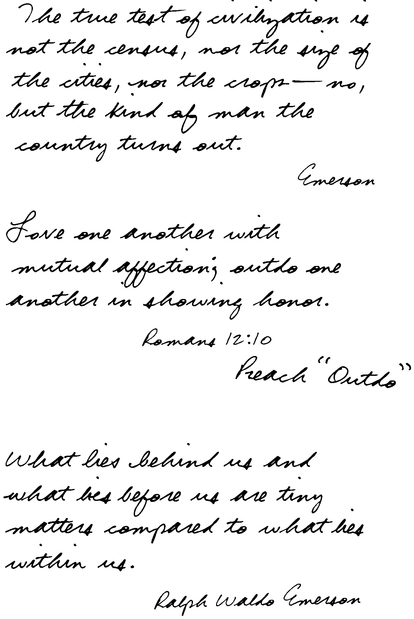 The true test of civilization is
not the census, nor the size of
the cities, nor the crops — no,
but the kind of man the
country turns out.
Emerson
Love one another with
mutual affection; outdo one
another in showing honor.
Romans 12:10
Preach "Outdo"
What lies behind us and
what lies before us are tiny
matters compared to what lies
within us.
Ralph Waldo Emerson